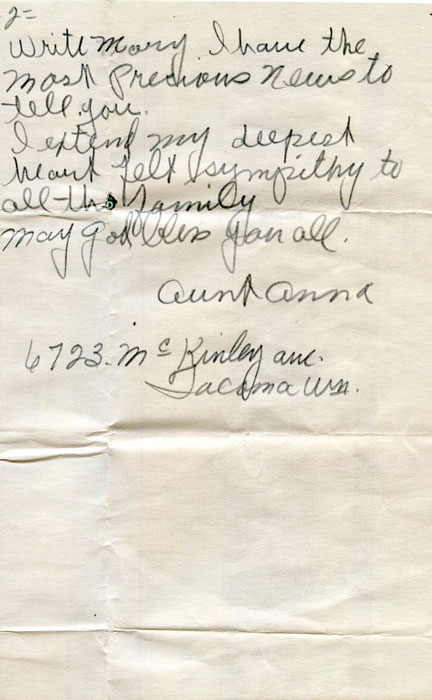 2=
Write Mary I have the
most Precious News to
tell you.
I extend my deepest
heart felt sympithy to
all the family
may God bless you all.
Aunt Anna
6723. Mc Kinley ave.
Tacoma Wn.